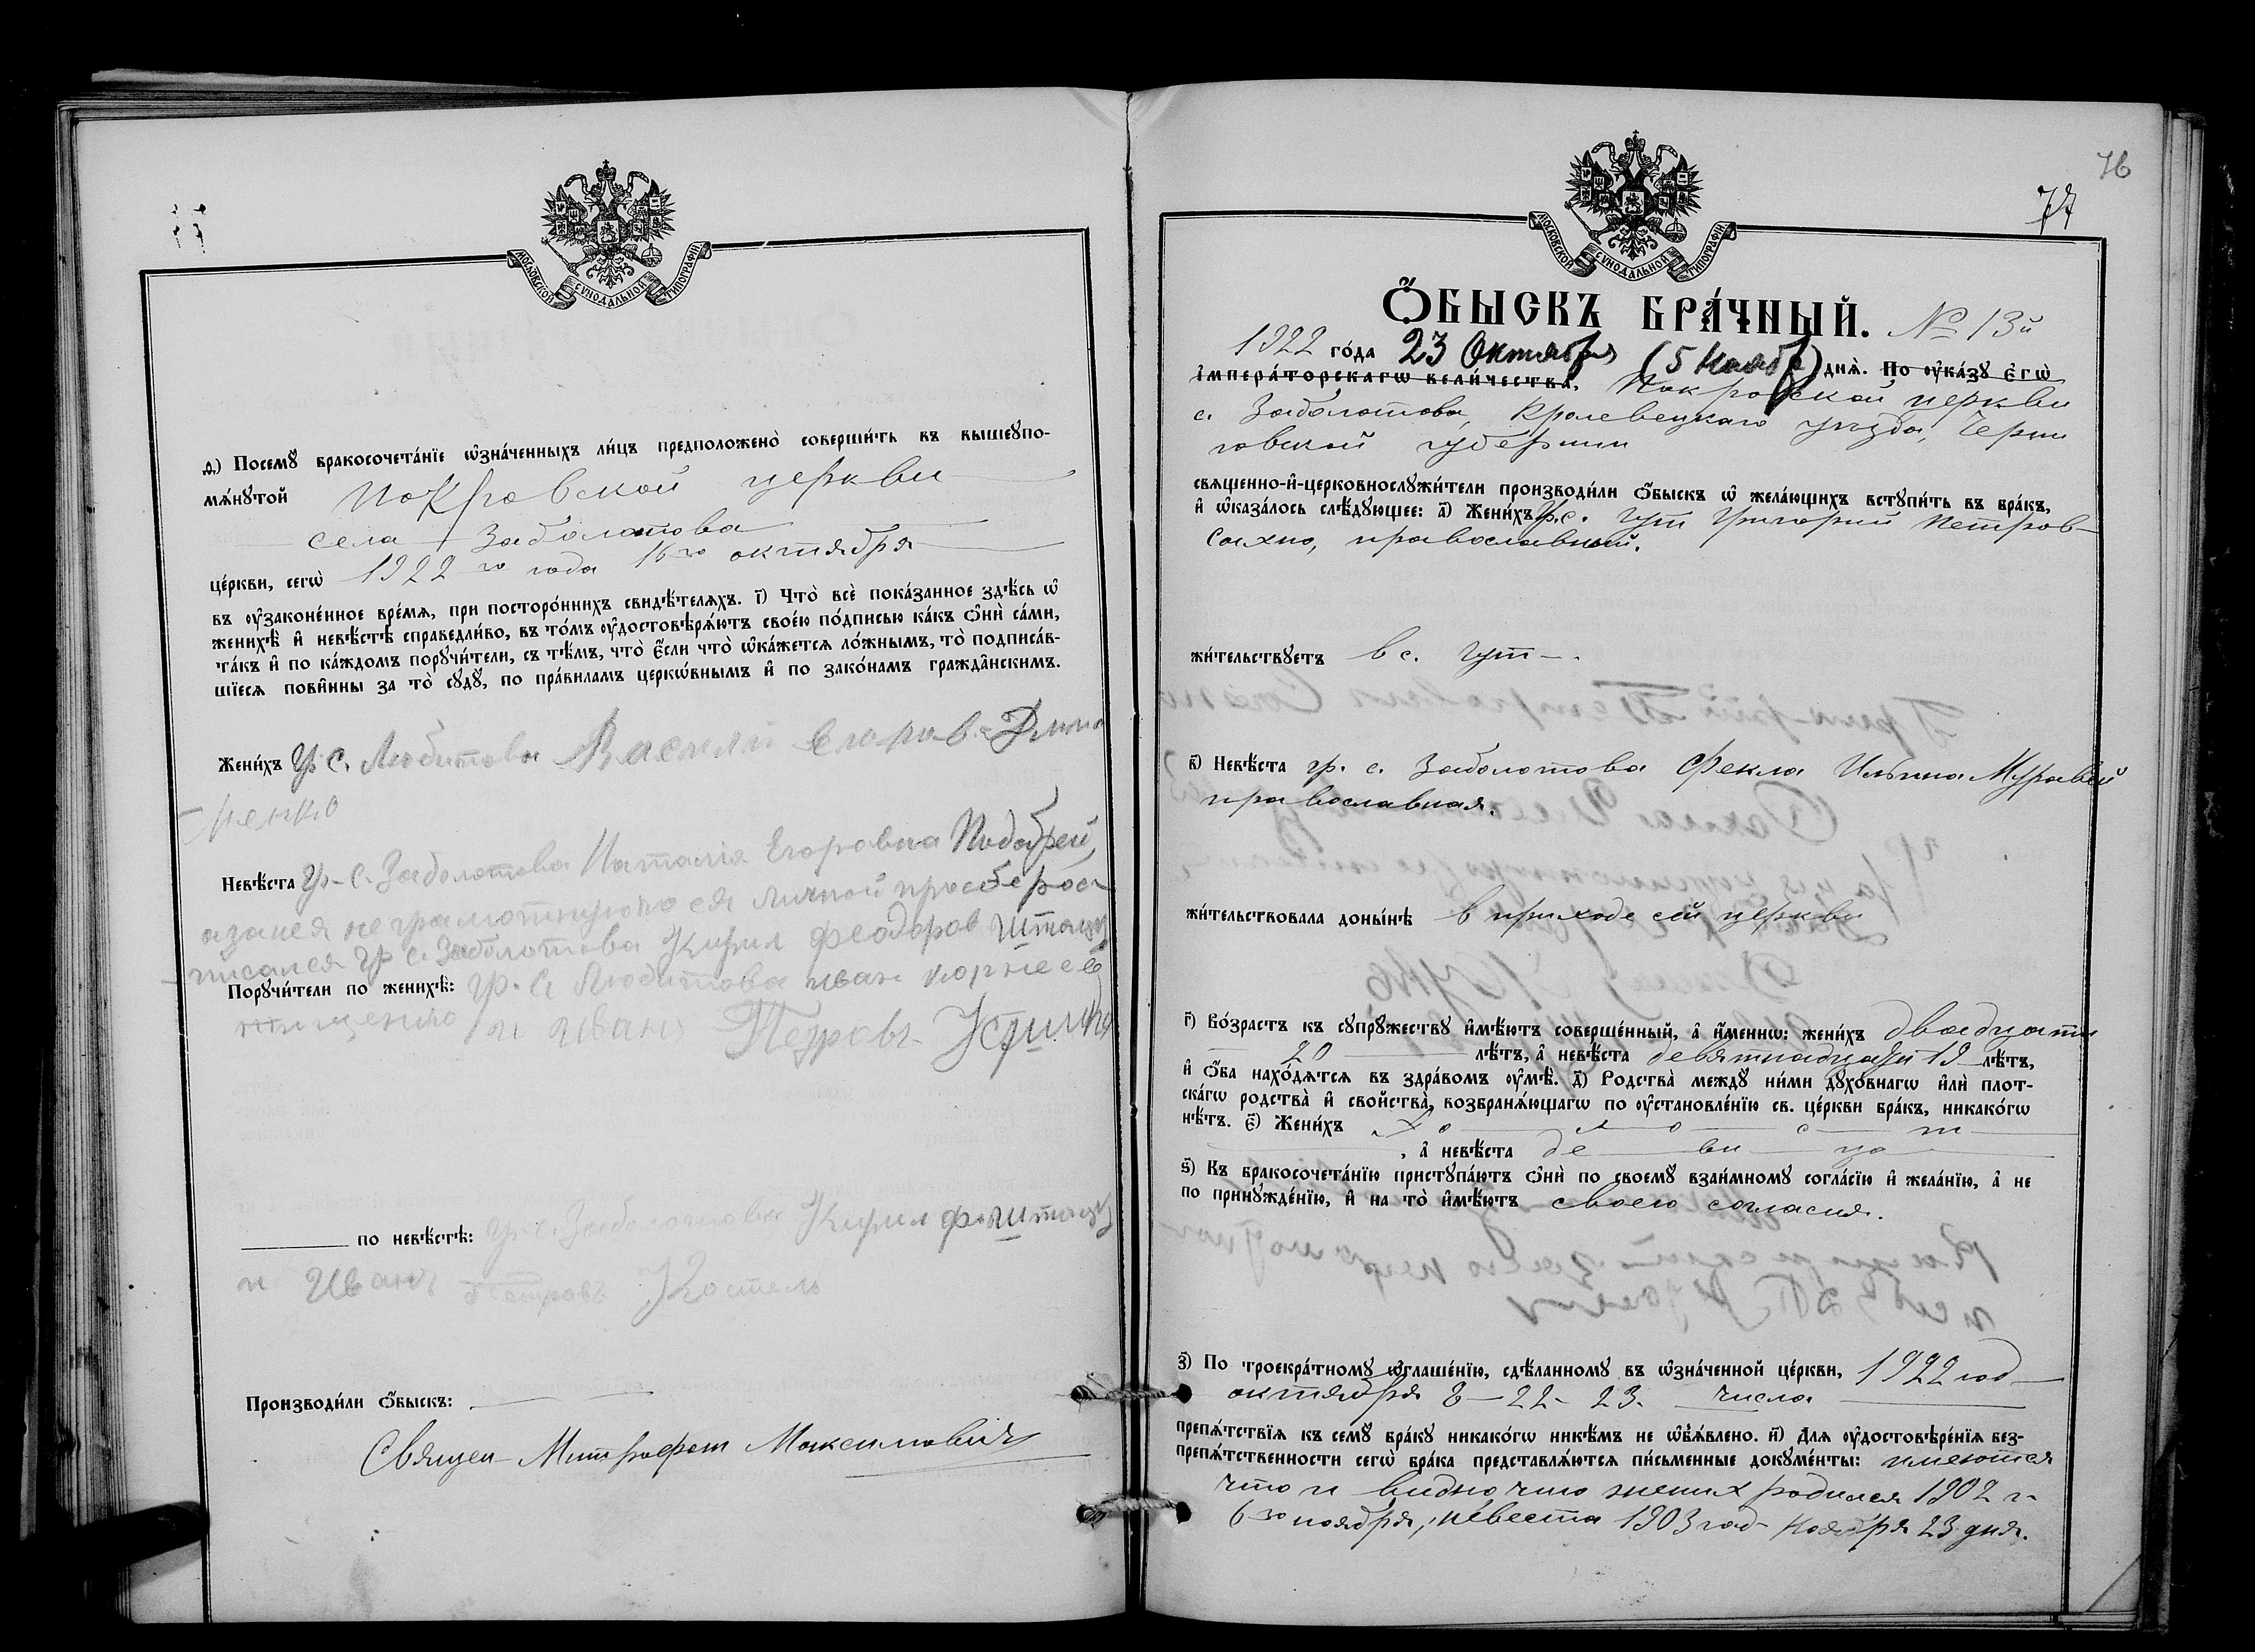 МОСКОВСКОЙ СУНОДАЛЬНОЙ ТИПОГРАФІИ
д҃.) Посемꙋ̀ бракосочета́нїе ѡ҆зна́ченныхъ ли́цъ предположено̀ соверши́ть въ вышеꙋпо-
мѧ́нꙋтой Покровской церкви
села Заболотова
це́ркви, сегѡ̀ 1922 го года 16 го октября
въ ᲂу҆законе́нное вре́мѧ, при посторо́ннихъ свидѣ́телѧхъ. і҃) Что̀ всѐ пока́занное здѣ́сь ѡ҆
женихѣ̀ и҆ невѣ́стѣ справедли́во, въ то́мъ ᲂу҆достовѣрѧ́ютъ свое́ю по́дписью ка́къ ѻ҆нѝ са́ми,
та́къ и҆ по ка́ждомъ порꙋчи́тели, съ тѣ́мъ, что̀ є҆́сли что̀ ѡ҆ка́жетсѧ ло́жнымъ, то̀ подписа́в-
шїесѧ пови́нны за то̀ сꙋдꙋ̀, по пра́виламъ церко́внымъ и҆ по зако́намъ гражда̂нскимъ.
Жени́хъ Гр. с. Любитова Василий Егоров. Дими
-ренко
Невѣ́ста Гр. с. Заболотова Наталія Егоровна Подобрей,
а за нея неграмотную по ея личной просбе рос
писался гр. с. Заболотова Кирил Феодоров Штацу
Порꙋчи́тели по женихѣ̀: Гр. с. Любитова иван корнеев
тищенко и иван Петровъ Устим
по невѣ́стѣ: гр. с. Заболотова Кирил Ф. Штацу
и Иванъ Петровъ Костель
Производи́ли ѻ҆́быскъ:
Священ Митрофан Максимович
76
77
МОСКОВСКОЙ СУНОДАЛЬНОЙ ТИПОГРАФІИ
Ѻ҆́БЫСКЪ БРА́ЧНЫЙ. № 13й
1922 го́да 23 Октября (5 Ноябр) днѧ̀. По ᲂу҆ка́зꙋ є҆гѡ̀
і҆мпера́торскагѡ вели́чества, Покровской церкви
с. Заболотова, Кролевецкаго уезда, Черни
говской губернии
свѧщенно-и҆-церковнослꙋжи́тели производи́ли ѻ҆́быскъ ѡ҆ жела́ющихъ встꙋпи́ть въ бра́къ,
и҆ ѡ҆каза́лось слѣ́дꙋющее: а҃) Жени́хъ Гр. с. Гут Григорий Петров
Сахно, православный.
жи́тельствꙋетъ в с. Гут
в҃) Невѣ́ста гр. с. Заболотова Фекла Ильина Муравей
православная.
жи́тельствовала доны́нѣ в приходе сей церкви
г҃) Во́зрастъ къ сꙋпрꙋ́жествꙋ и҆мѣ́ютъ соверше́нный, а҆ и҆́меннѡ: жени́хъ двадцати
20 лѣ́тъ, а҆ невѣ́ста девятнадцати 19 лѣ́тъ,
и҆ ѻ҆́ба нахо́дѧтсѧ въ здра́вомъ ᲂу҆мѣ̀. д҃) Родства̀ междꙋ̀ ни́ми дꙋхо́внагѡ и҆лѝ плот-
ска́гѡ родства̀ и҆ сво́йства, возбранѧ́ющагѡ по ᲂу҆становле́нїю св. це́ркви бра́къ, никако́гѡ
нѣ́тъ. є҃) Жени́хъ Холост
, а҆ невѣ́ста девица
ѕ҃) Къ бракосочета́нїю пристꙋпа́ютъ ѻ҆нѝ по своемꙋ̀ взаи́мномꙋ согла́сїю и҆ жела́нїю, а҆ не
по принꙋжде́нїю, и҆ на то̀ и҆мѣ́ютъ своего согласия.
з҃) По троекра́тномꙋ ѡ҆глаше́нїю, сдѣ́ланномꙋ въ ѡ҆зна́ченной це́ркви, 1922 год
октября 8 – 22 – 23. числа
препѧ́тствїѧ къ семꙋ̀ бра́кꙋ никако́гѡ никѣ́мъ не ѡ҆б̾ѧ́влено. и҃) Длѧ ᲂу҆достовѣре́нїѧ без-
препѧ́тственности сегѡ̀ бра́ка представлѧ́ютсѧ пи́сьменные докꙋме́нты: имеются
что и видно что жених родился 1902 г.
6 го ноября, невеста 1903 год Ноября 23 дня.